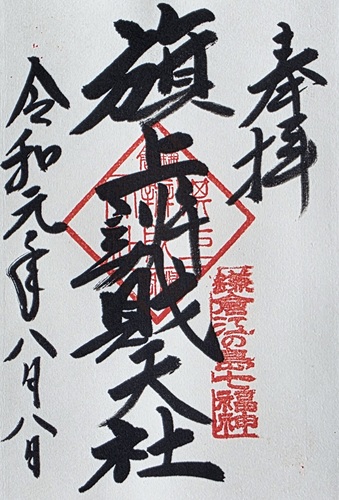 奉拝
鎌倉江の島七福神
旗上辨財天社
令和元年八月八日